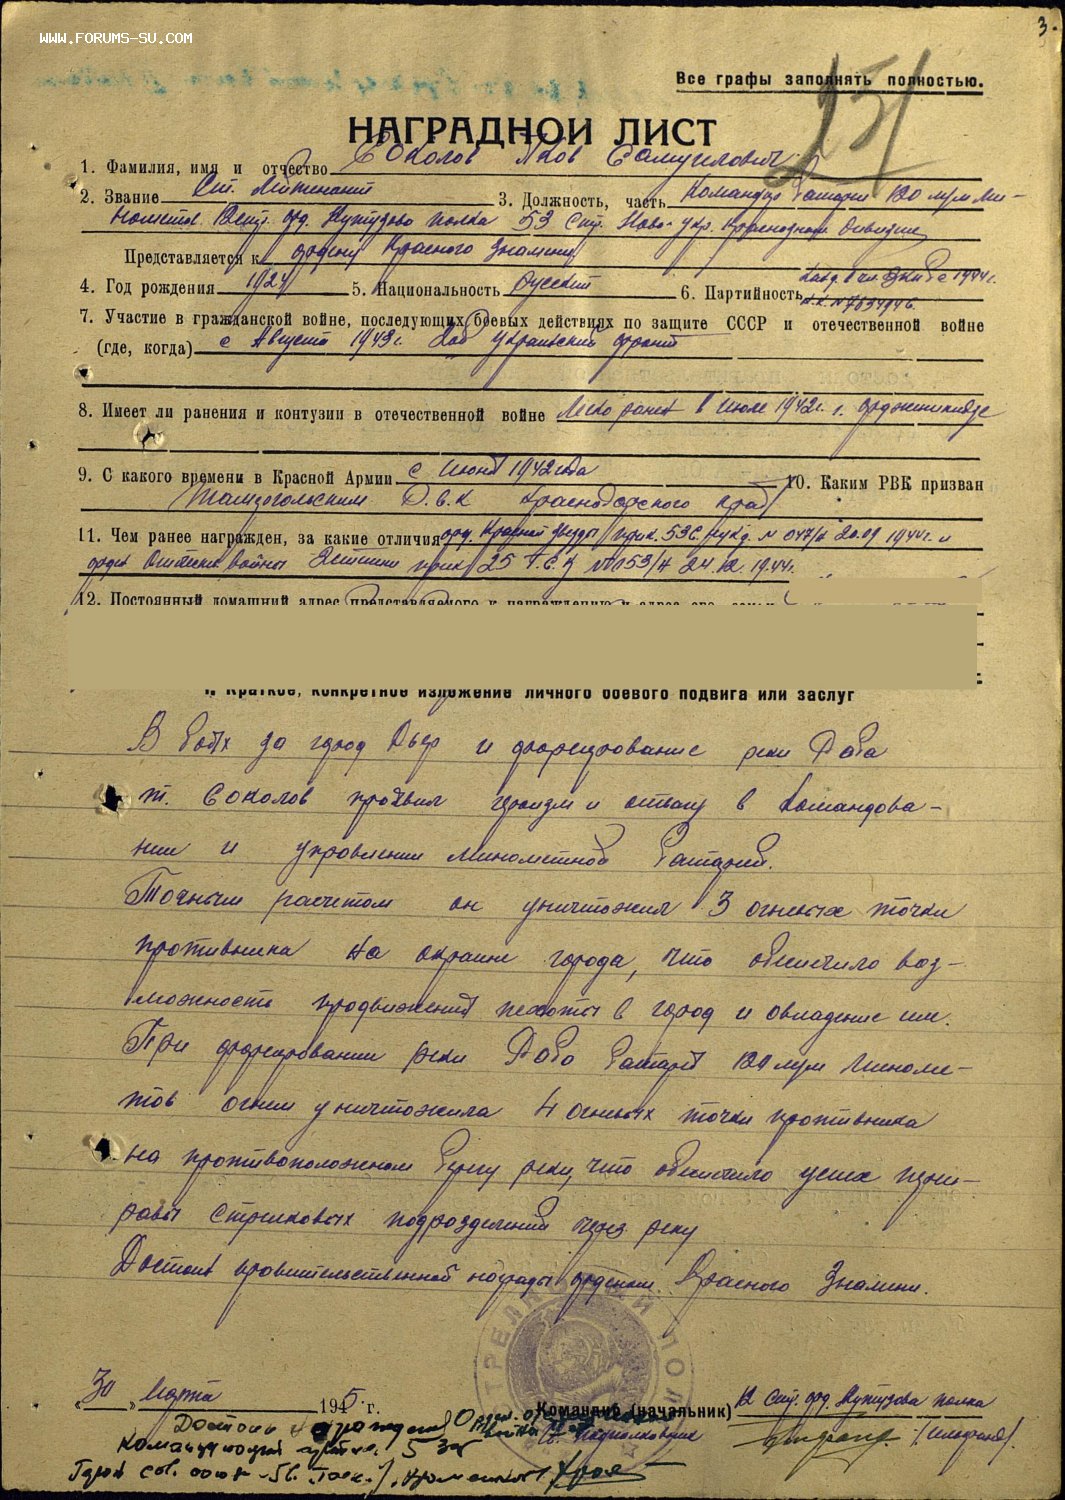 WWW.FORUMS-SU.COM
3.
Все графы заполнять полностью.
151
НАГРАДНОЙ ЛИСТ
1. Фамилия, имя и отчество Соколов Яков Самуилович
2. Звание Ст. Лейтенант 3. Должность, часть Командир батареи 120 м/м ми-
нометов полка 53 стр. дивизии
Представляется к ордену Красного Знамени
4. Год рождения 1924 5. Национальность русский 6. Партийность с 1944г.
7. Участие в гражданской войне, последующих боевых действиях по защите СССР и отечественной войне
(где, когда) с Августа 1943г. Украинский фронт
8. Имеет ли ранения и контузии в отечественной войне Легко ранен в июле 1942г. г. Орджоникидзе
9. С какого времени в Красной Армии с июня 1942 года 10. Каким РВК призван
Р.В.К Краснодарского края
11. Чем ранее награжден, за какие отличия орд. Красной звезды прик. 53 С. 1944г. и
орден Отечеств войны прик 25 Г.С.К 24.12.1944г.
12. Постоянный домашний адрес представляемого к награждению и адрес его семьи
I. Краткое, конкретное изложение личного боевого подвига или заслуг
В боях за город Дьер и форсирование реки Раба
т. Соколов проявил героизм и отвагу в командова-
нии и управлении минометной батареей.
Точным расчетом он уничтожил 3 огневых точки
противника на окраине города, что обеспечило воз-
можность продвижения пехоты в город и овладение им.
При форсировании реки Раба батарея 120 м/м миноме-
тов огнем уничтожила 4 огневых точки противника
на противоположном берегу реки, что обеспечило успех переп-
равы стрелковых подразделений через реку
Достоин правительственной награды орденом Красного Знамени.
СТРЕЛКОВЫЙ ПОЛК
„30" Марта 1945 г.
Командир (начальник) 12 стр. орд. Кутузова полка
Подполковник
Достоин награждения
Командующий 5
Герой сов. союза